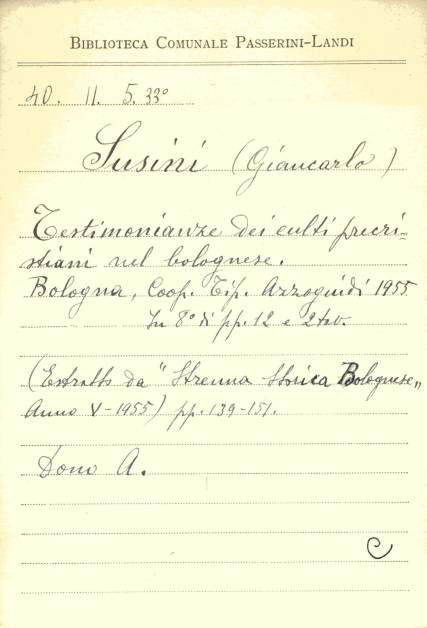 BIBLIOTECA COMUNALE PASSERINI-LANDI
40. II. 5. 33°
Susini (Giancarlo)
Testimonianze dei culti precri-
stiani nel bolognese.
Bologna, Coop. Tip. Azzoguidi 1955
In 8° di pp. 12 e 2 tav.
(Estratto da "Strenna Storica Bolognese"
Anno V - 1955) pp. 139-151.
Dono A.
C